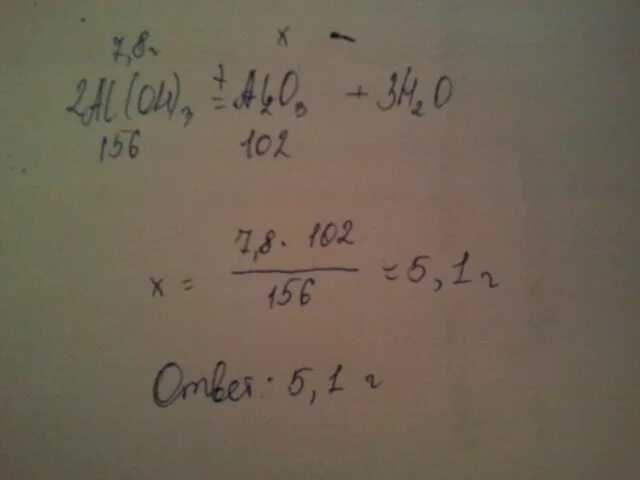 7,8г x –
2Al(OH)₃ t= Al₂O₃ + 3H₂O
156 102
7,8 · 102
x = ―――― = 5,1 г
156
Ответ: 5,1 г